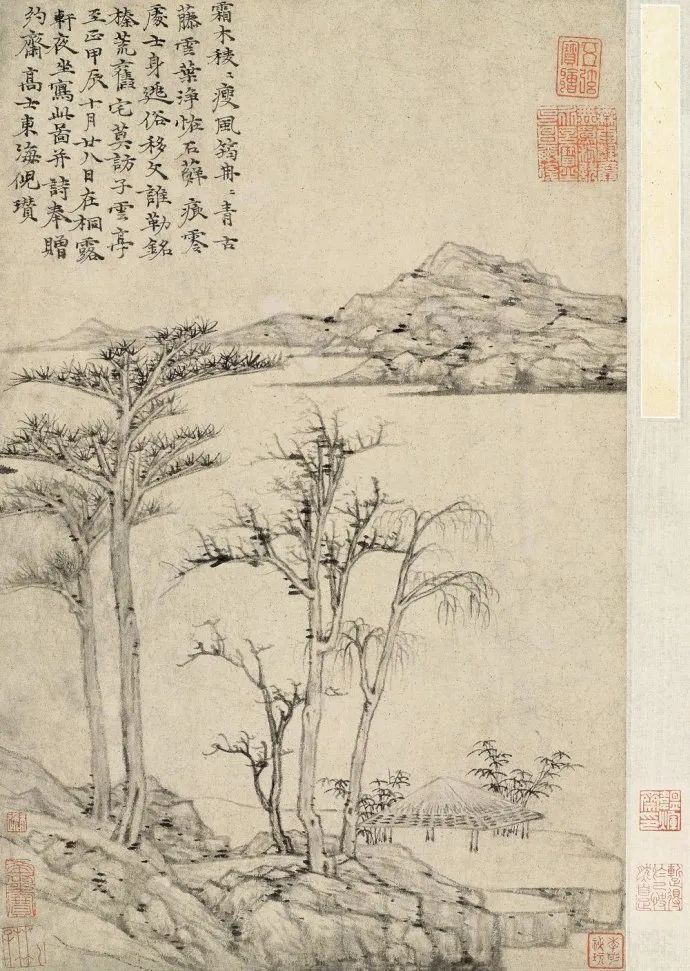 霜木稜〻瘦風筠冉〻青古
藤雲葉淨怪石蘚痕零
處士身遯俗移文誰勒銘
榛荒舊宅莫訪子雲亭
至正甲辰十月廿八日在桐露
軒夜坐寫此圖并詩奉贈
約齋高士東海倪瓚